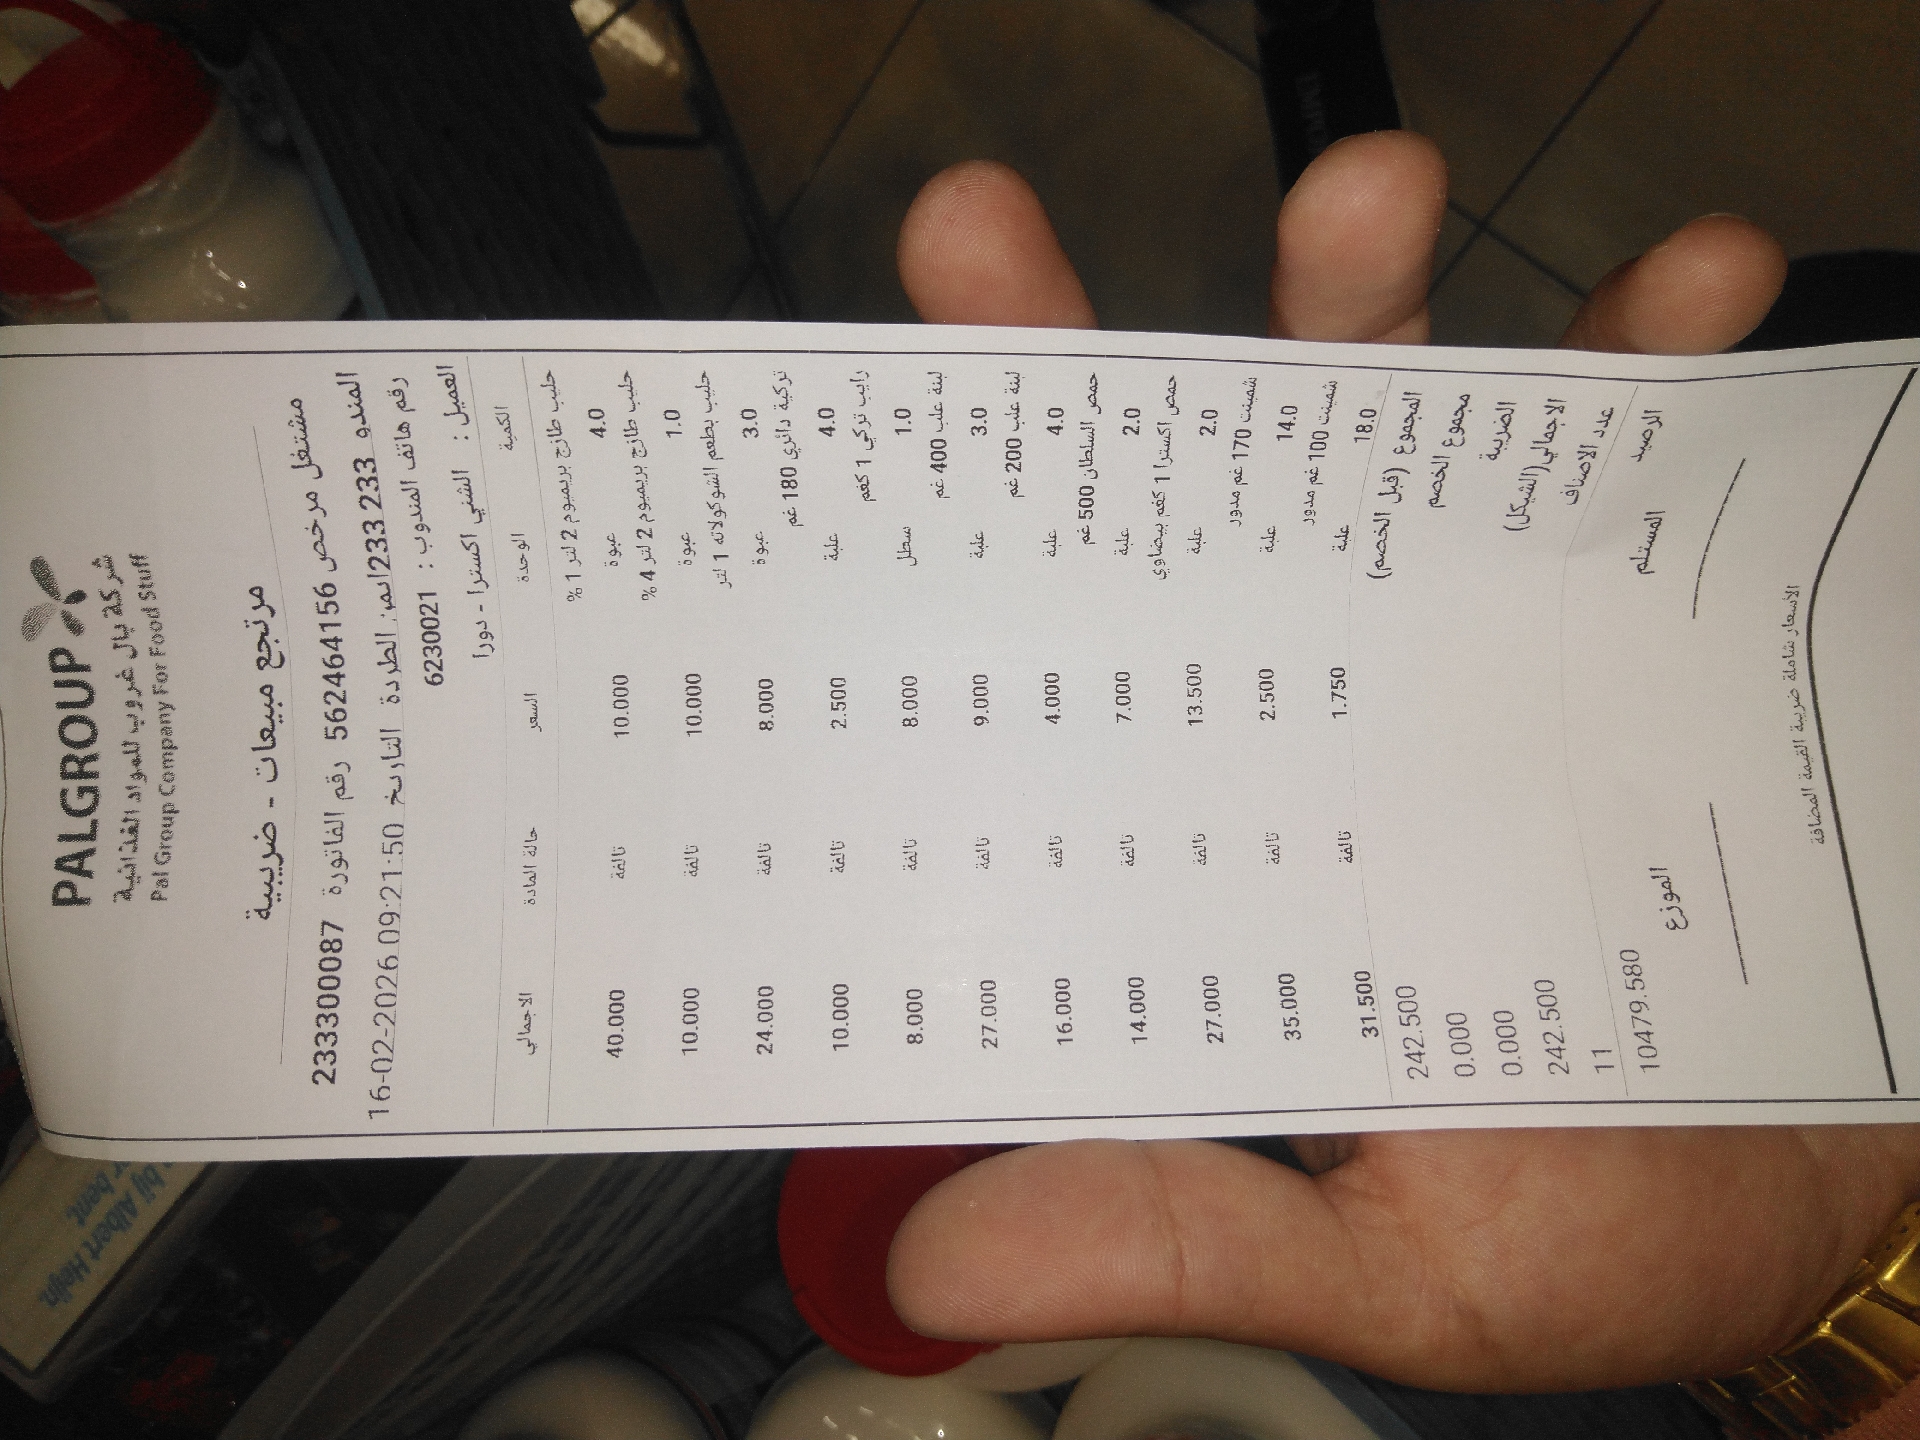 PALGROUP
شركة بال غروب للمواد الغذائية
Pal Group Company For Food Stuff
مرتجع مبيعات - ضريبية
مشتغل مرخص 562464156 رقم الفاتورة 233300087
المندو 233 233 233 الطردة التاريخ 16-02-2026 09:21:50
رقم هاتف المندوب : 6230021
العميل : الشني اكسترا - دورا
الكمية الوحدة السعر حالة المادة الاجمالي
حليب طازج بريميوم 2 لتر 1 %
4.0 عبوة 10.000 تالفة 40.000
حليب طازج بريميوم 2 لتر 4 %
1.0 عبوة 10.000 تالفة 10.000
حليب بطعم الشوكولاته 1 لتر
3.0 عبوة 8.000 تالفة 24.000
تركية دائري 180 غم
4.0 علبة 2.500 تالفة 10.000
رايب تركي 1 كغم
1.0 سطل 8.000 تالفة 8.000
لبنة علب 400 غم
3.0 علبة 9.000 تالفة 27.000
لبنة علب 200 غم
4.0 علبة 4.000 تالفة 16.000
حمص السلطان 500 غم
2.0 علبة 7.000 تالفة 14.000
حمص اكسترا 1 كغم بيضاوي
2.0 علبة 13.500 تالفة 27.000
شمينت 170 غم مدور
14.0 علبة 2.500 تالفة 35.000
شمينت 100 غم مدور
18.0 علبة 1.750 تالفة 31.500
المجموع (قبل الخصم) 242.500
مجموع الخصم 0.000
الضريبة 0.000
الاجمالي(الشيكل) 242.500
عدد الاصناف 11
الرصيد 10479.580
المستلم الموزع
الأسعار شاملة ضريبة القيمة المضافة
bij Albert Heijn
bent